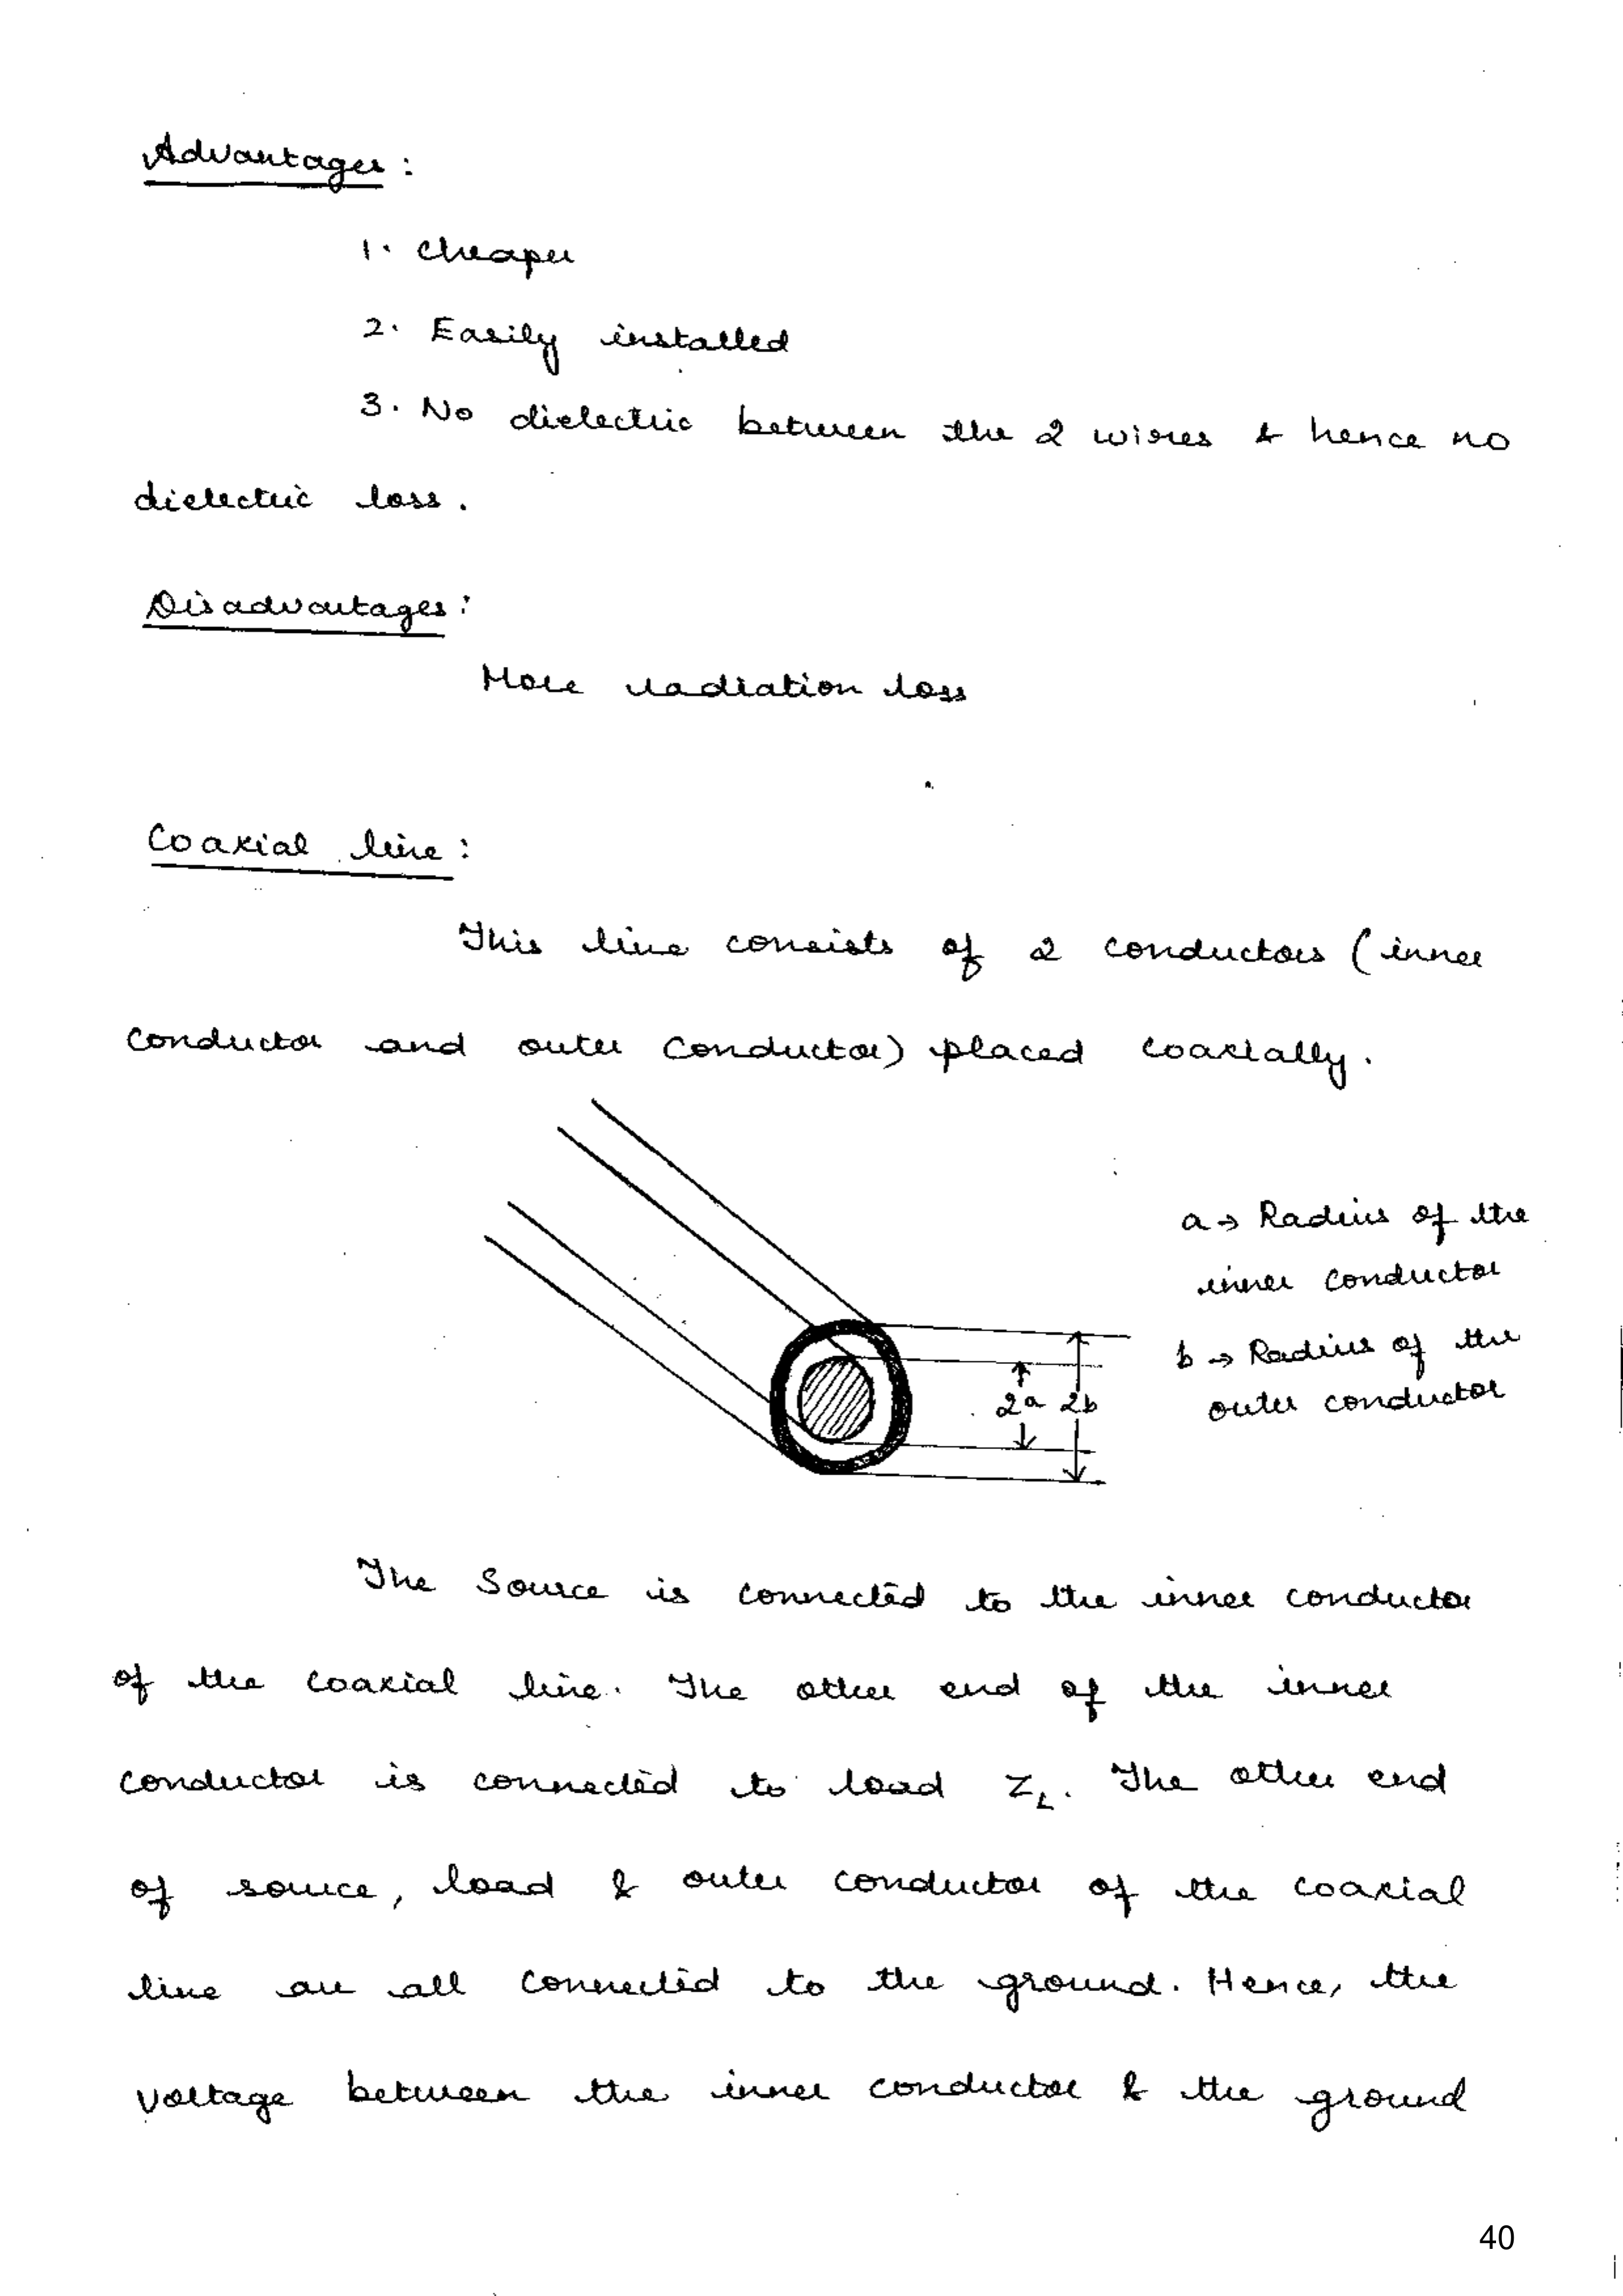 Advantages :
1. Cheaper
2. Easily installed
3. No dielectric between the 2 wires & hence no
dielectric loss.
Disadvantages :
More radiation loss
Coaxial line :
This line consists of 2 conductors (inner
conductor and outer conductor) placed coaxially.
a → Radius of the
inner conductor
b → Radius of the
outer conductor
2a 2b
The Source is connected to the inner conductor
of the coaxial line. The other end of the inner
conductor is connected to load Z_L. The other end
of source, load & outer conductor of the coaxial
line are all connected to the ground. Hence, the
voltage between the inner conductor & the ground
40